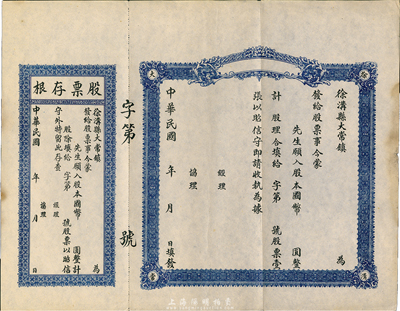 徐溝縣大常鎮 為
發給股票事今蒙
先生願入股本國幣 圓整
計 股理合填給 字第 號股票壹
張以昭信守即請收執為據
經理
協理
中華民國 年 月 日填發
字第 號
股票存根
徐溝縣大常鎮 為
發給股票事今蒙
先生願入股本國幣 圓整計
股除填給 字第 號股票以昭信
守外時留此存查
經理
協理
中華民國 年 月 日